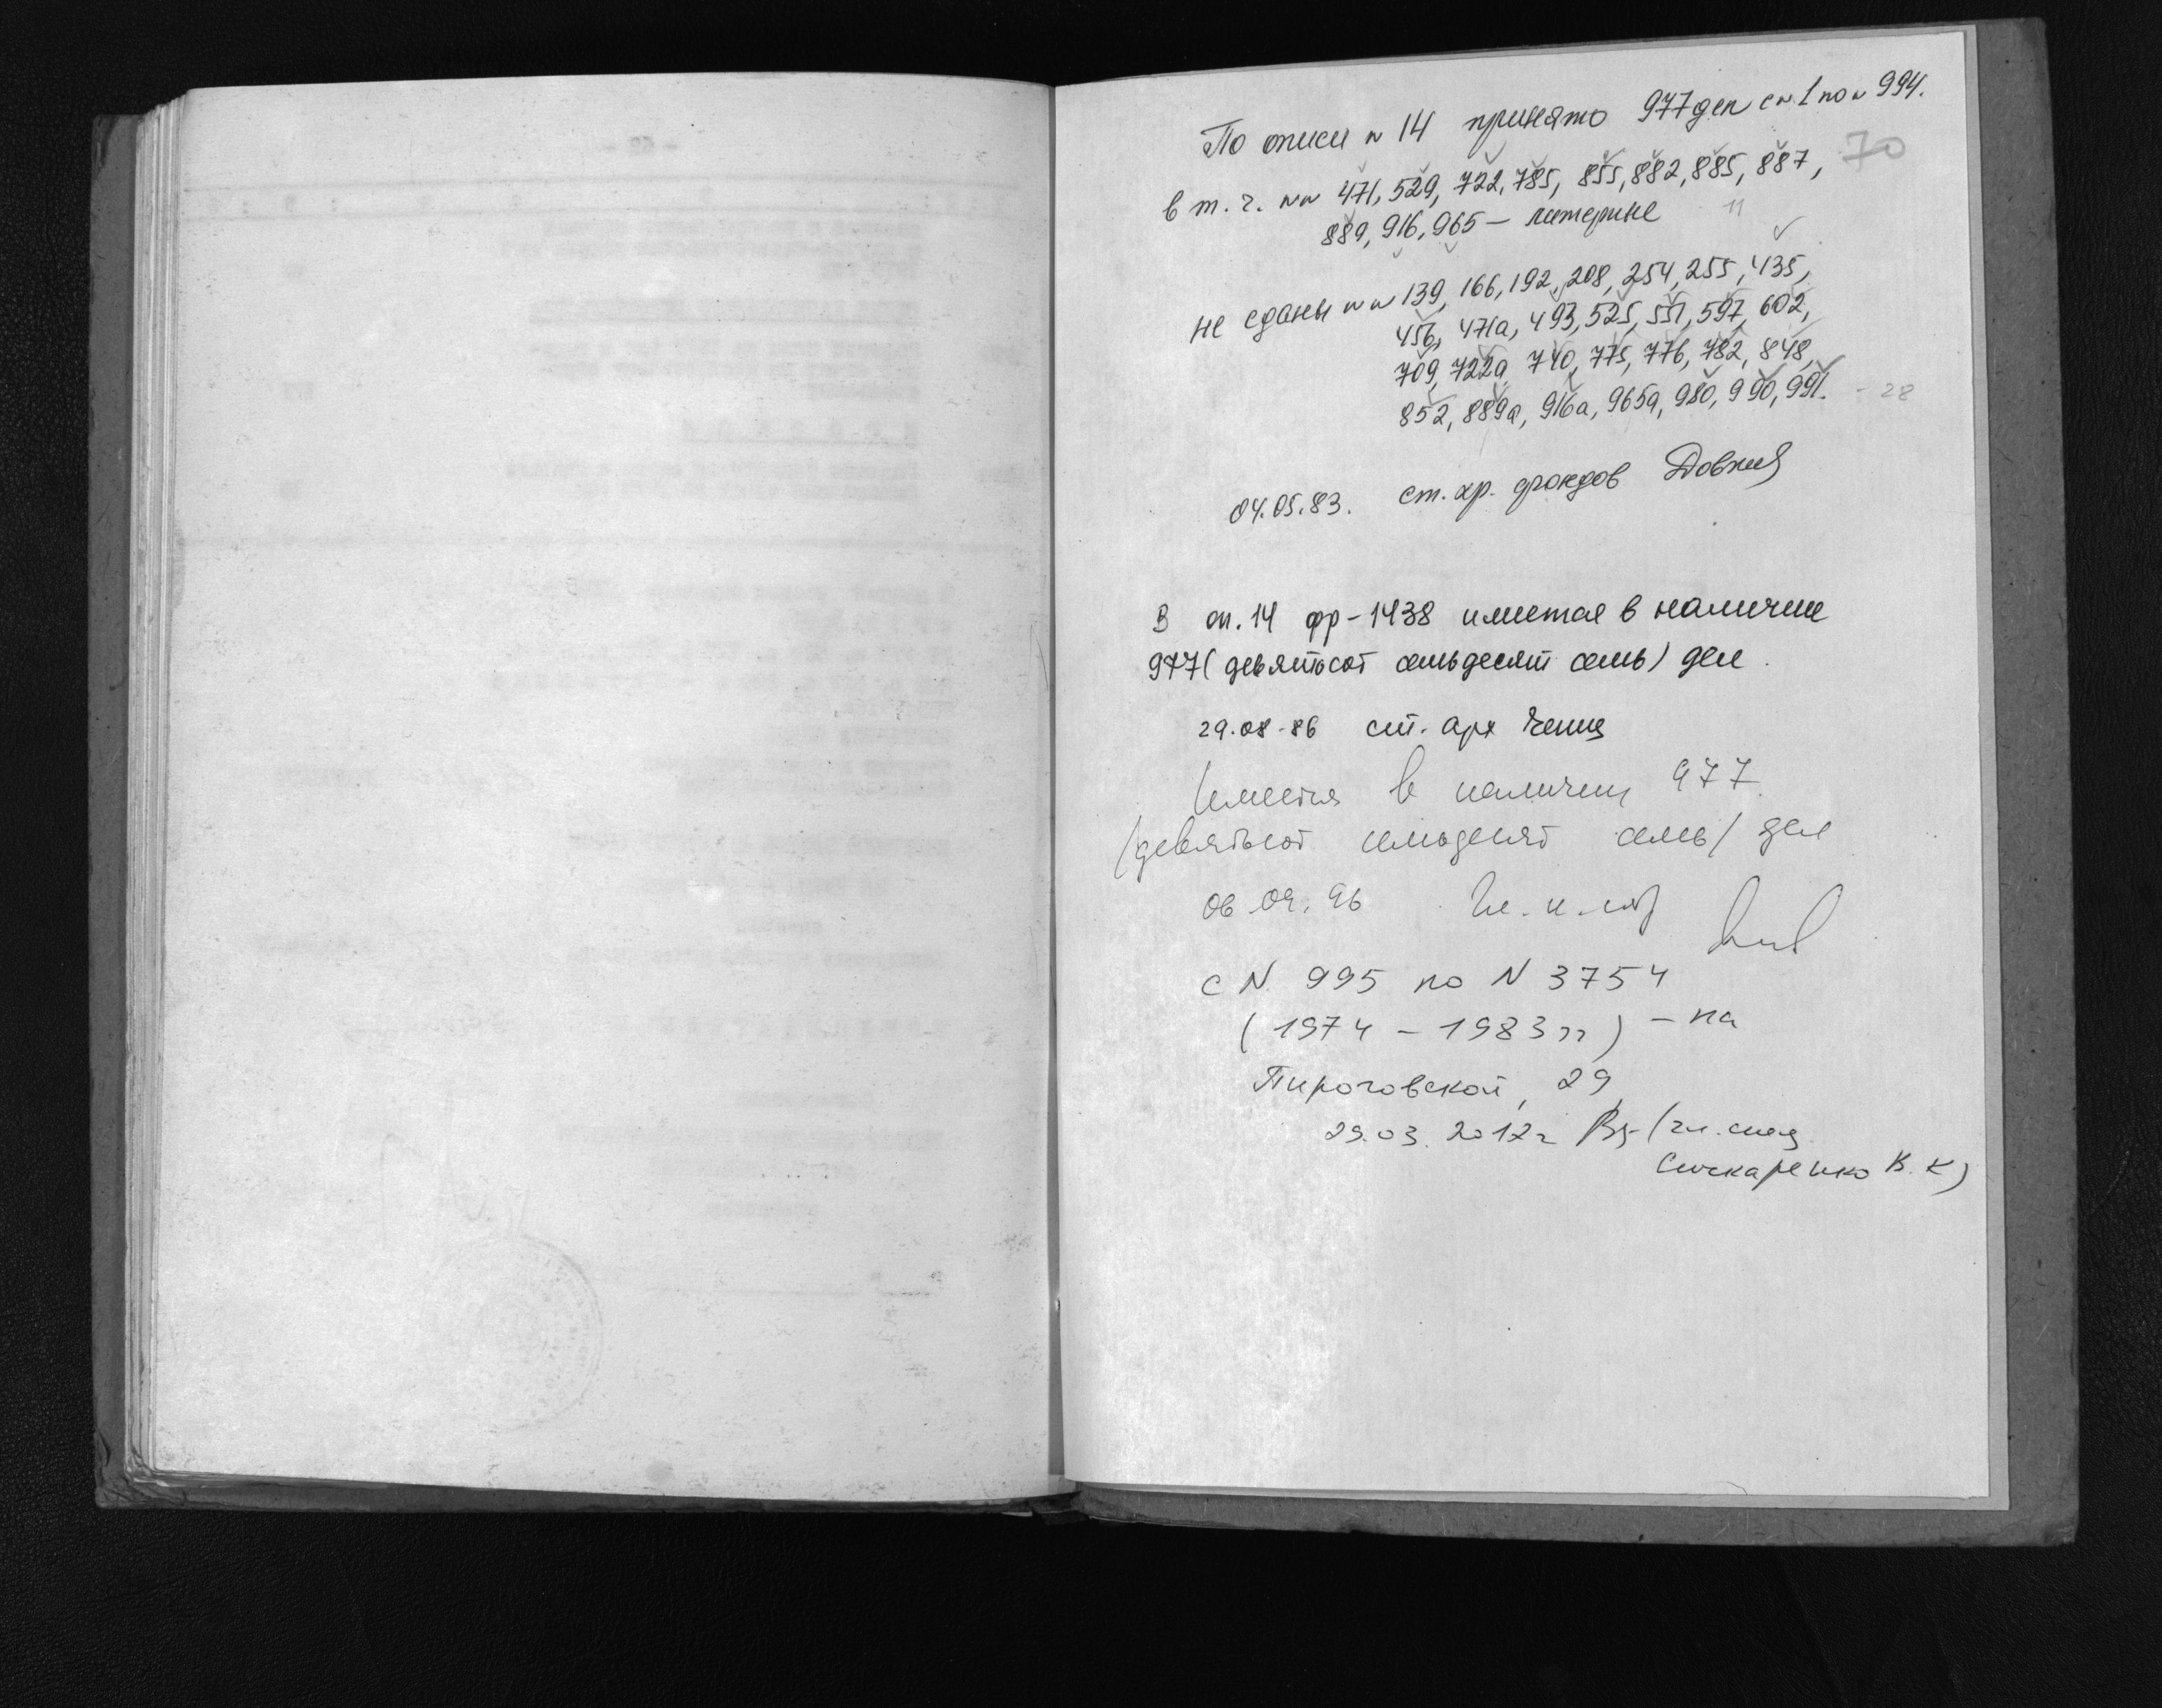 По описи № 14 принято 977 дел с № 1 по № 994.
70
в т. ч. №№ 471, 529, 722, 785, 855, 882, 885, 887,
889, 916, 965 — литерные 11
не сданы №№ 139, 166, 192, 208, 254, 255, 435,
456, 471а, 493, 525, 551, 597, 602,
709, 722а, 740, 775, 776, 782, 848,
852, 889а, 916а, 965а, 980, 990, 991. - 28
04.05.83. ст. хр. фондов
В оп. 14 фр-1438 имеется в наличие
977 (девятьсот семьдесят семь) дел.
29.08.86 ст. арх
Имеется в наличии 977
/девятьсот семьдесят семь/ дел
06.09.96
с N 995 по N 3754
(1974 – 1983 гг) – на
Пироговской, 29
29.03.2012г (гл. спец
В. К)